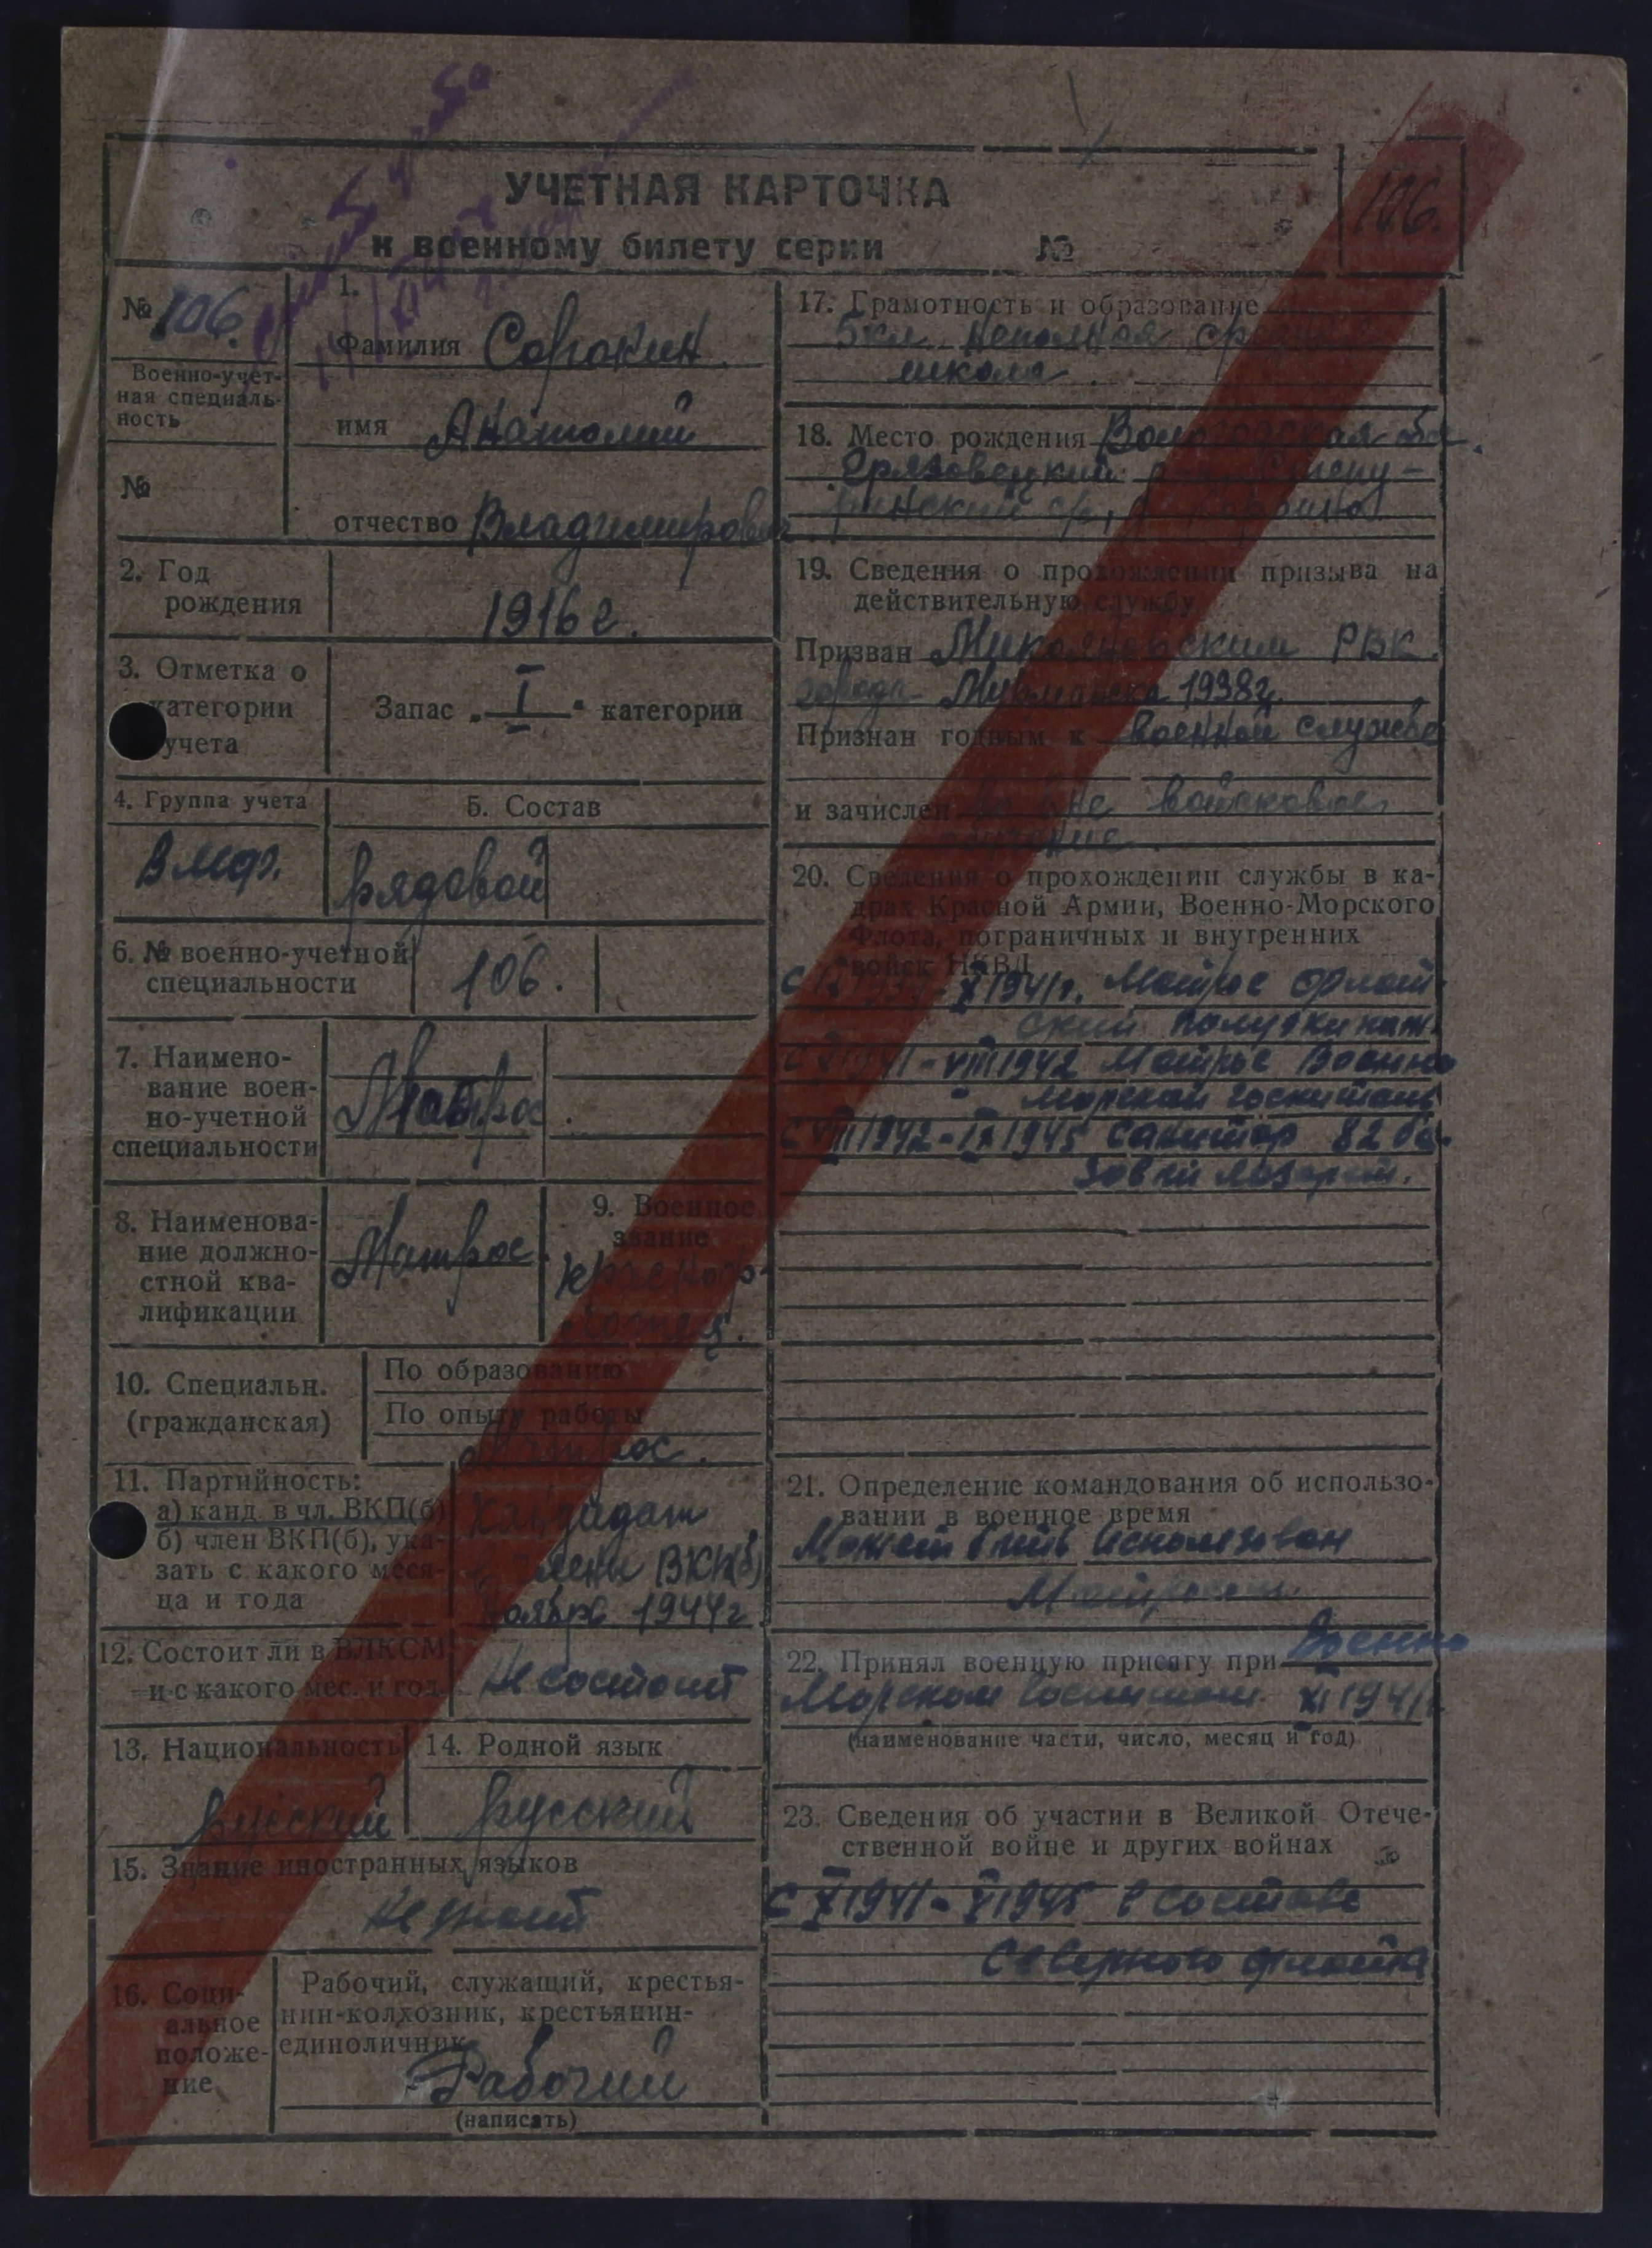 УЧЕТНАЯ КАРТОЧКА
к военному билету серии №
106.
№ 106.
Военно-учет-
ная специаль-
ность
№
1.
Фамилия Сорокин
имя Анатолий
отчество Владимирович
2. Год
рождения
1916 г.
3. Отметка о
категории
учета
Запас „ I " категории
4. Группа учета
ВМФ.
5. Состав
рядовой
6. № военно-учетной
специальности
106.
7. Наимено-
вание воен-
но-учетной
специальности
Матрос.
8. Наименова-
ние должно-
стной ква-
лификации
Матрос.
9. Военное
звание
10. Специальн.
(гражданская)
По образованию
По опыту работы
Матрос.
11. Партийность:
а) канд. в чл. ВКП(б)
б) член ВКП(б), ука-
зать с какого меся-
ца и года
Кандидат
в члены ВКП(б)
ноябрь 1944 г.
12. Состоит ли в ВЛКСМ
и с какого мес. и год.
Не состоит
13. Национальность
русский
14. Родной язык
русский
15. Знание иностранных языков
Не знает
16. Соци-
альное
положе-
ние
Рабочий, служащий, крестья-
нин-колхозник, крестьянин-
единоличник
Рабочий
(написать)
17. Грамотность и образование
5 кл. неполная средняя
школа.
18. Место рождения Вологодская обл.
Грязовецкий р-н
19. Сведения о прохождении призыва на
действительную службу
Призван Микояновским РВК
города Мурманска 1938 г.
Признан годным к военной службе
и зачислен войсковое
20. Сведения о прохождении службы в ка-
драх Красной Армии, Военно-Морского
Флота, пограничных и внутренних
войск НКВД
X 1941 г. Матрос флот-
ский полуэкипаж.
С X 1941 - VIII 1942 Матрос Военно
морской госпиталь
С VIII 1942 - IX 1945 санитар 82 ба-
зовый лазарет.
21. Определение командования об использо-
вании в военное время
Может быть использован
Матросом.
22. Принял военную присягу при Военно
Морском госпитале XI 1941 г.
(наименование части, число, месяц и год)
23. Сведения об участии в Великой Отече-
ственной войне и других войнах
С X 1941 - V 1945 в составе
Северного флота